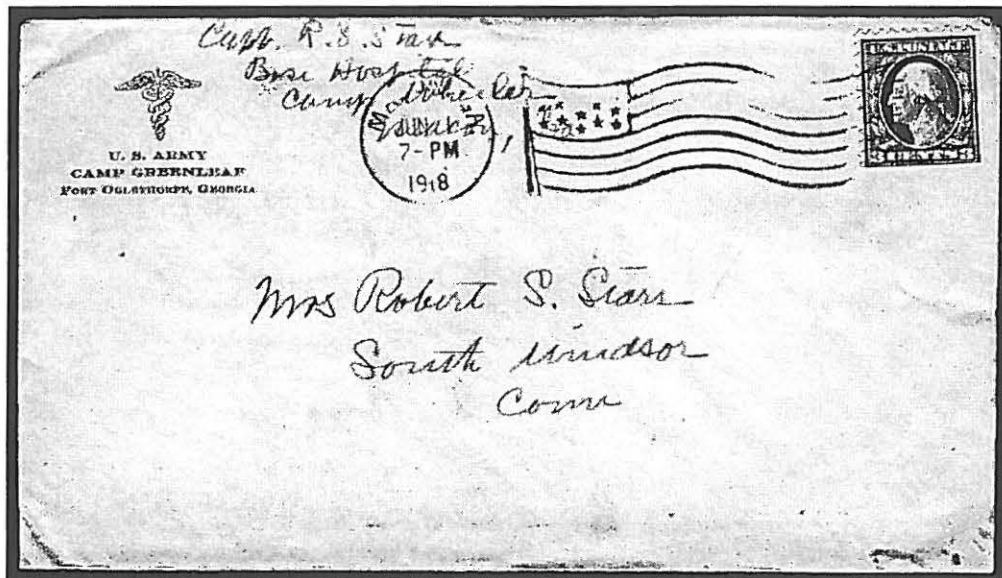 Capt. R. S. Starr
Base Hospital
Camp Wheeler
U. S. ARMY
CAMP GREENLEAF
FORT OGLETHORPE, GEORGIA
7-PM
1918
3 CENTS 3
Mrs Robert S. Starr
South Windsor
Conn